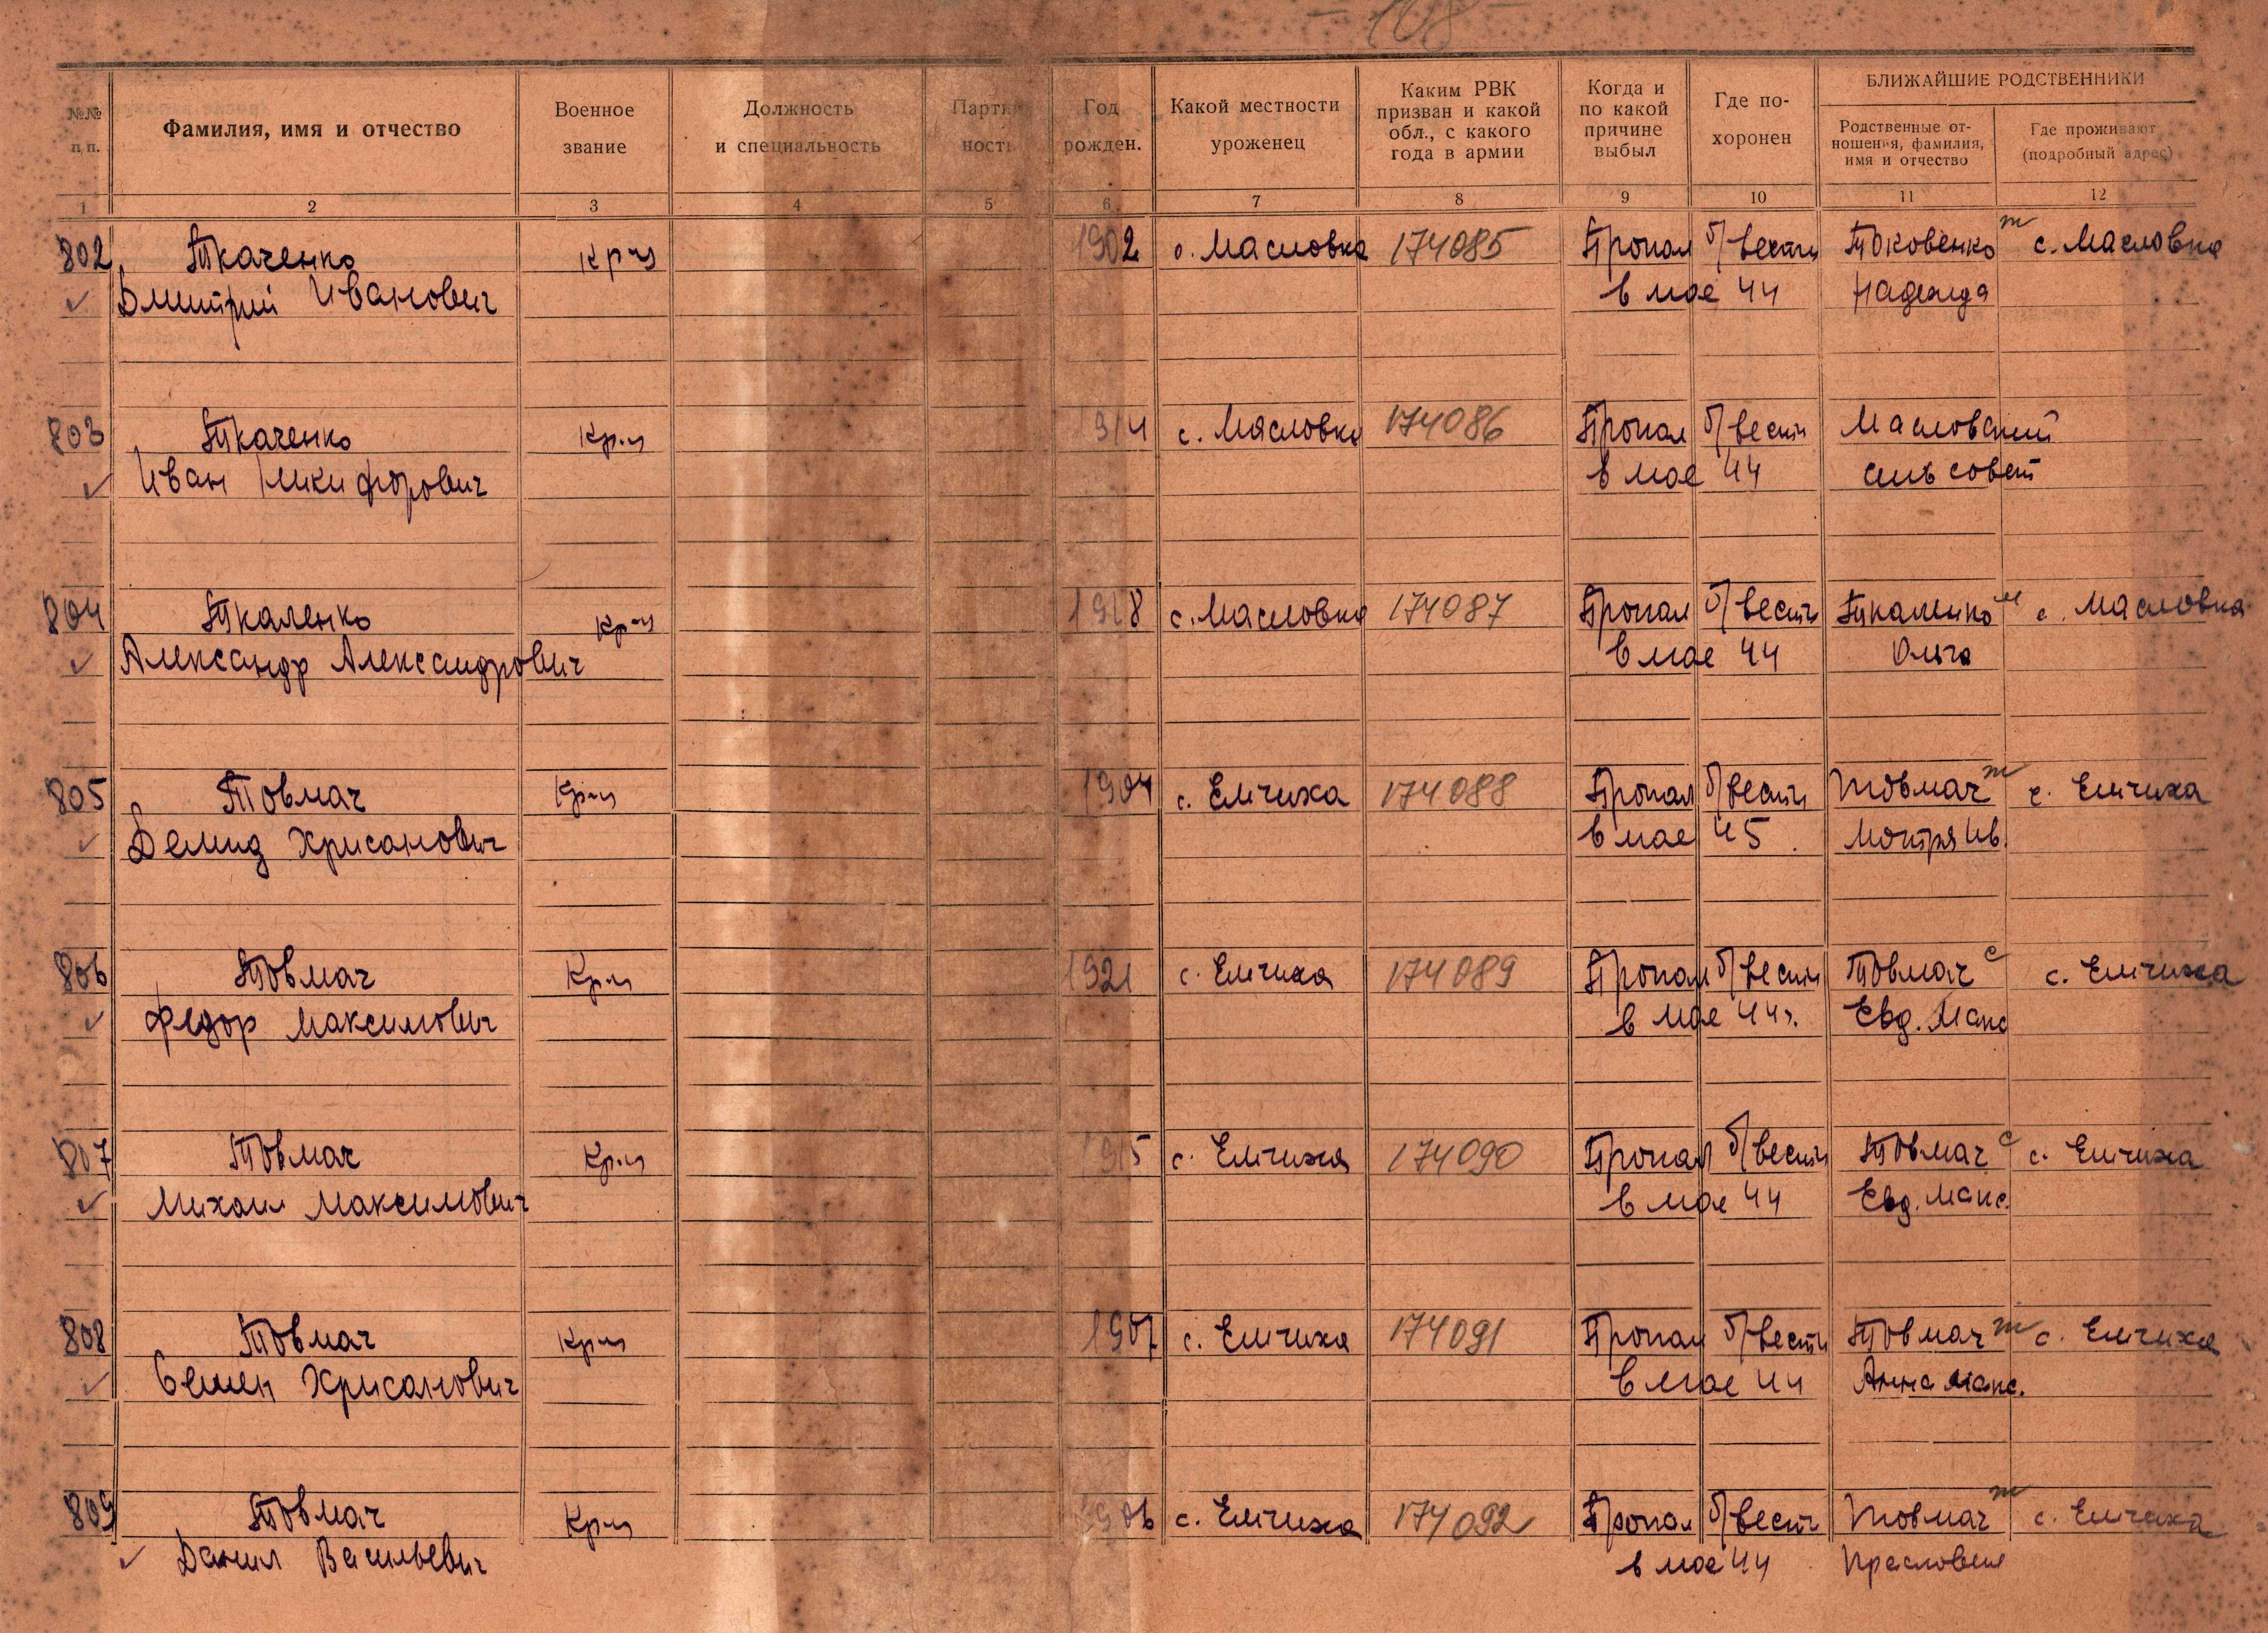 - 108 -
БЛИЖАЙШИЕ РОДСТВЕННИКИ
№№ п. п.
Фамилия, имя и отчество
Военное звание
Должность и специальность
Партийность
Год рожден.
Какой местности уроженец
Каким РВК призван и какой обл., с какого года в армии
Когда и по какой причине выбыл
Где похоронен
Родственные отношения, фамилия, имя и отчество
Где проживают (подробный адрес)
1 2 3 4 5 6 7 8 9 10 11 12
802 Ткаченко кр-ц 1902 с. Масловка 174085 Пропал б/вести ж с. Масловка
Дмитрий Иванович в мае 44 Надежда
803 Ткаченко кр-ц 1914 с. Масловка 174086 Пропал б/вести Масловский
Иван Никифорович в мае 44 сельсовет
804 Ткаленко кр-ц 1918 с. Масловка 174087 Пропал б/вести Ткаленко м с. Масловка
Александр Александрович в мае 44 Ольга
805 Товмач Кр-ц 1904 с. Емчиха 174088 Пропал б/вести Товмач ж с. Емчиха
Демид Хрисанович в мае 45. Мотря Ив.
806 Товмач Кр-ц 1921 с. Емчиха 174089 Пропал б/вести Товмач с с. Емчиха
Федор Максимович в мае 44г. Евд. Макс
807 Товмач Кр-ц 1915 с. Емчиха 174090 Пропал б/вести Товмач с с. Емчиха
Михаил Максимович в мае 44 Евд. Макс.
808 Товмач Кр-ц 1907 с. Емчиха 174091 Пропал б/вести Товмач ж с. Емчиха
Семен Хрисанович в мае 44 Анна Макс.
809 Товмач Кр-ц 1906 с. Емчиха 174092 Пропал б/вести Товмач ж с. Емчиха
Данил Васильевич в мае 44